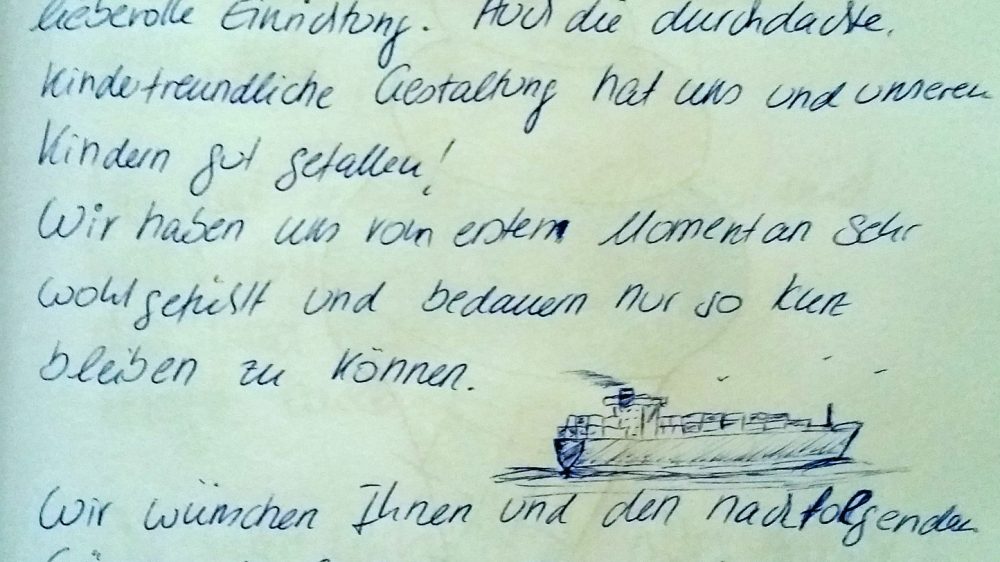 liebevolle Einrichtung. Auch die durchdachte,
kinderfreundliche Gestaltung hat uns und unseren
Kindern gut gefallen!
Wir haben uns vom ersten Moment an sehr
wohl gefühlt und bedauern nur so kurz
bleiben zu können.
Wir wünschen Ihnen und den nachfolgenden